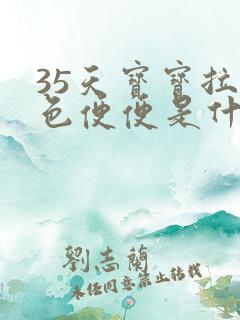 35天寶寶拉
色便便是什
劉志蘭
未经同意禁止转载